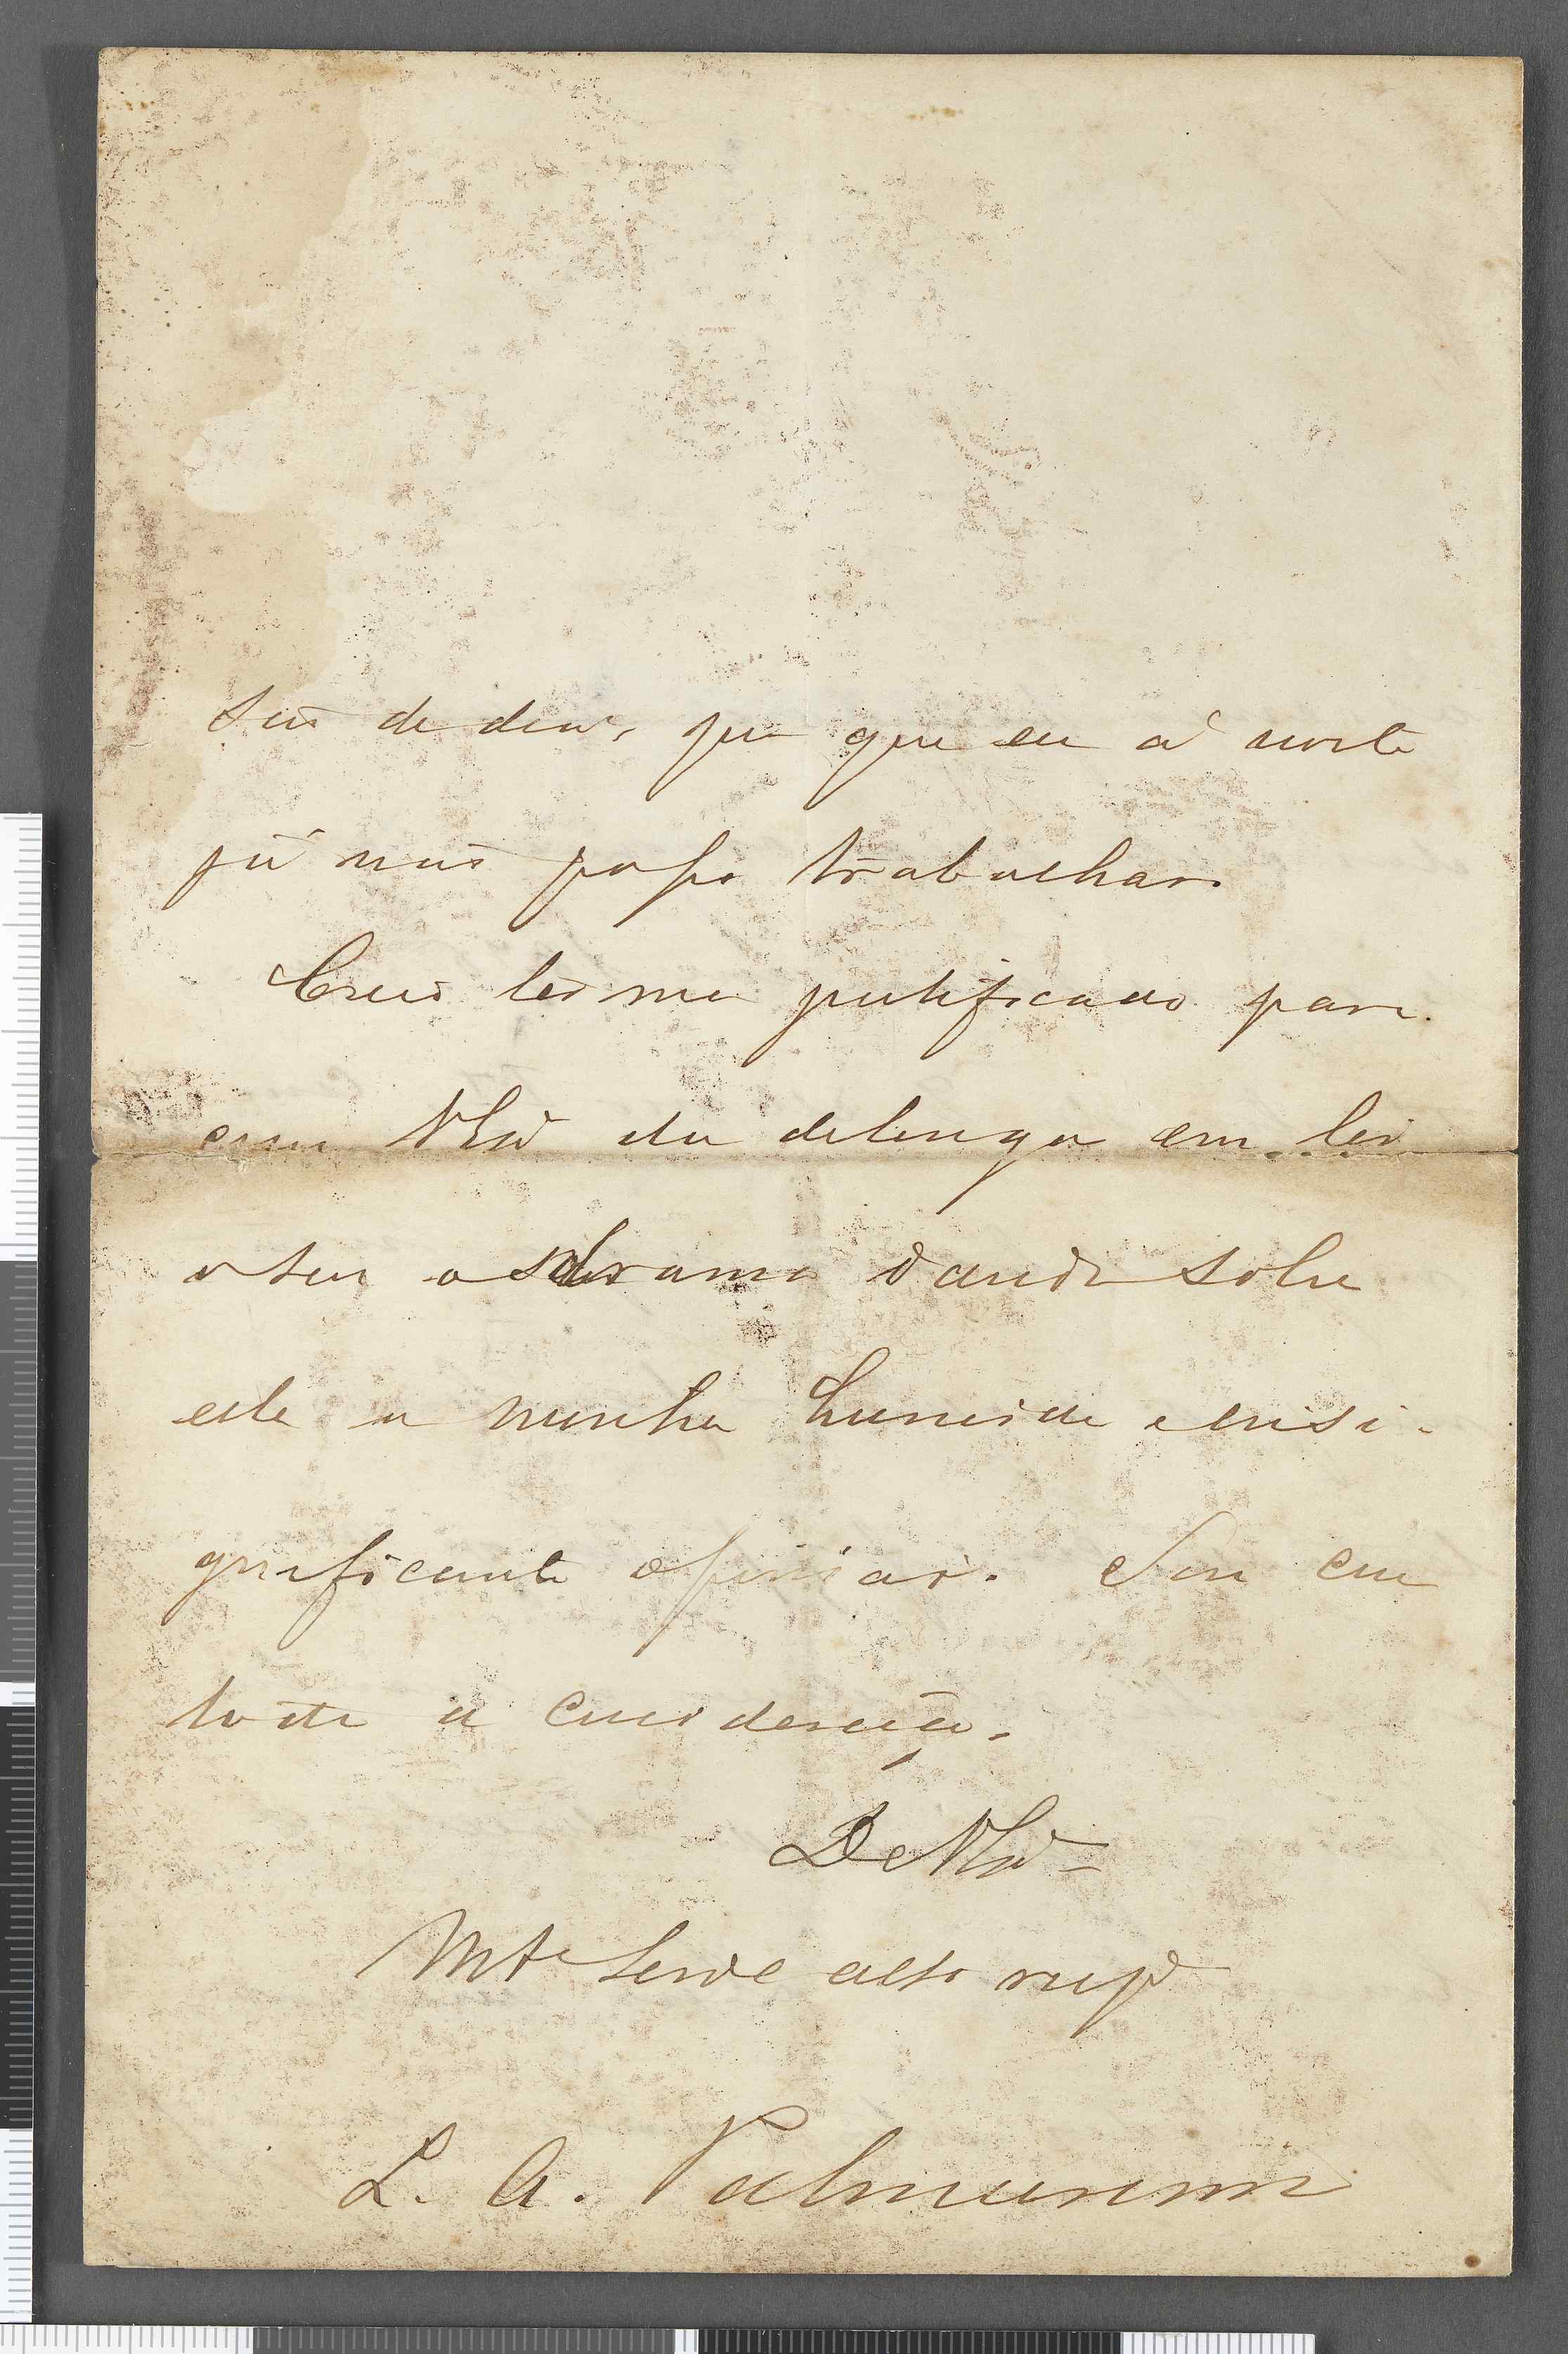 são de dias, que que eu á noite
já não posso trabalhar.
Creio ter me justificado para
com VSª da delonga em ler
o seu o drama dando sobre
este a minha humide e insi-
gnificante opinião. Sou com
toda a consideração.
De VSª
Mto Sendo atto resp
L. A. Palmeirim